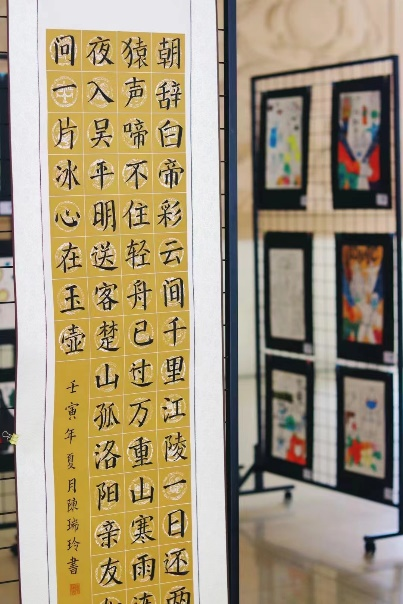 朝辞白帝彩云间千里江陵一日还两
猿声啼不住轻舟已过万重山寒雨连
夜入吴平明送客楚山孤洛阳亲友
问一片冰心在玉壶
壬寅年夏月陳瑞玲書